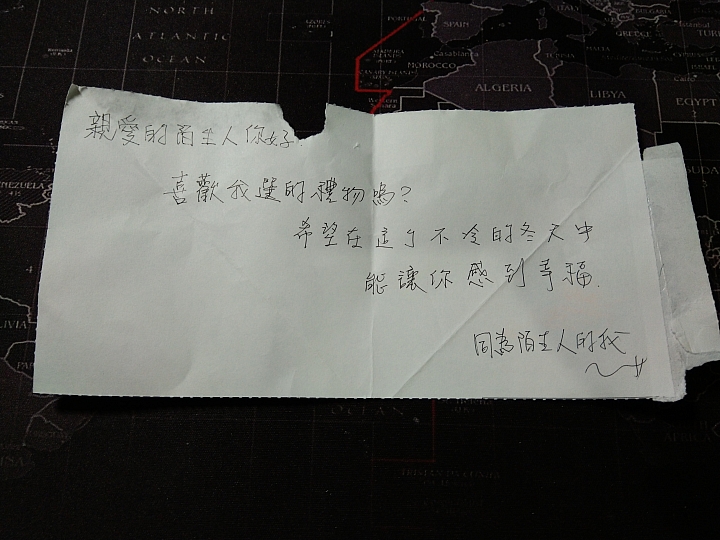 NORTH
ATLANTIC
OCEAN
PORTUGAL
SPAIN
GREECE
Casablanca
MOROCCO
MALTA
ALGERIA
LIBYA
EGYPT
親愛的陌生人你好.
喜歡我選的禮物嗎?
希望在這個不冷的冬天中
能讓你感到幸福.
同為陌生人的我
OCEAN